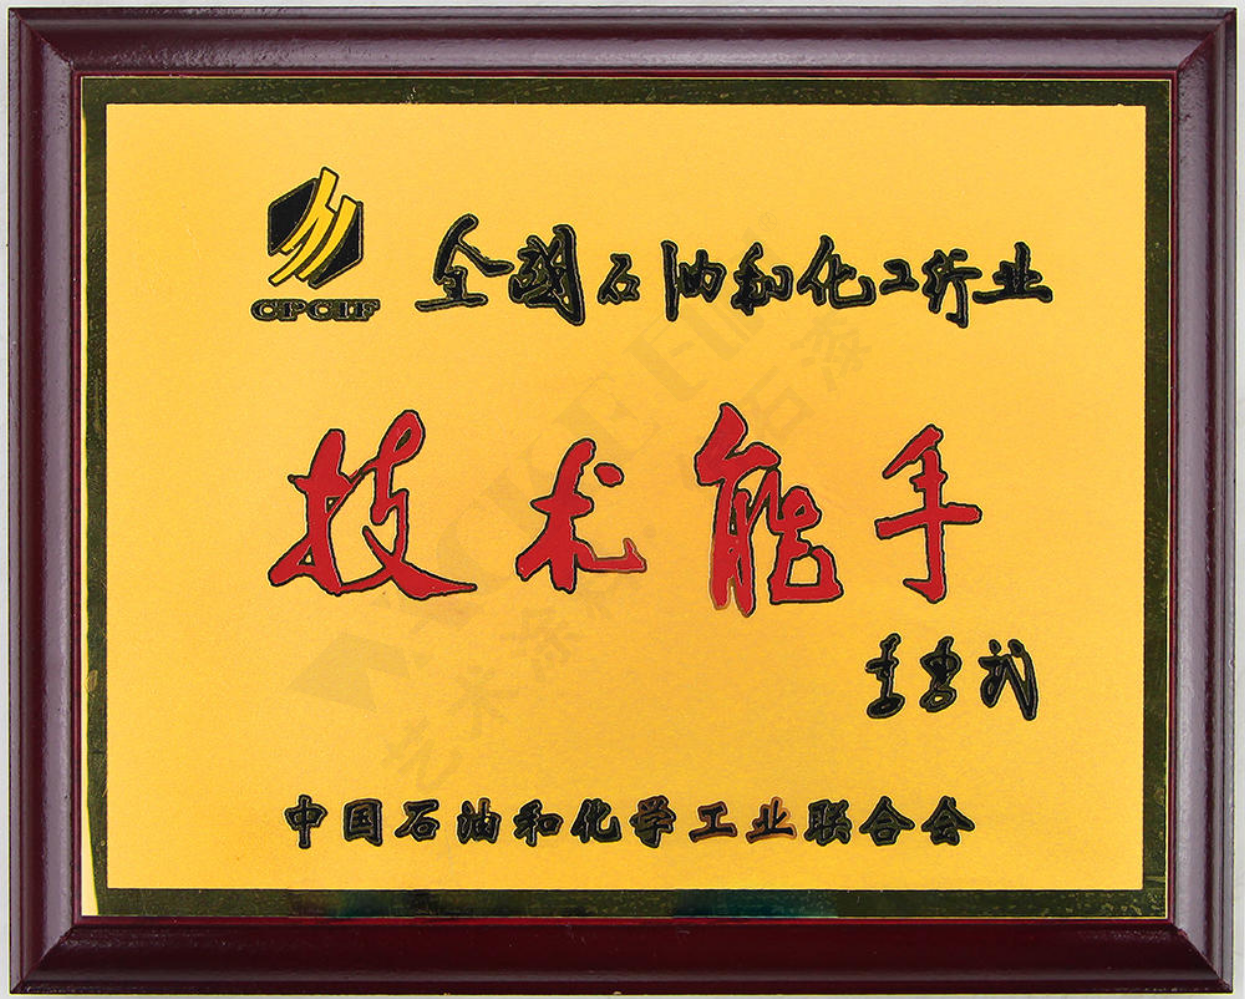 CPCIF
全国石油和化工行业
技术能手
李勇武
中国石油和化学工业联合会
艺术涂料
石漆